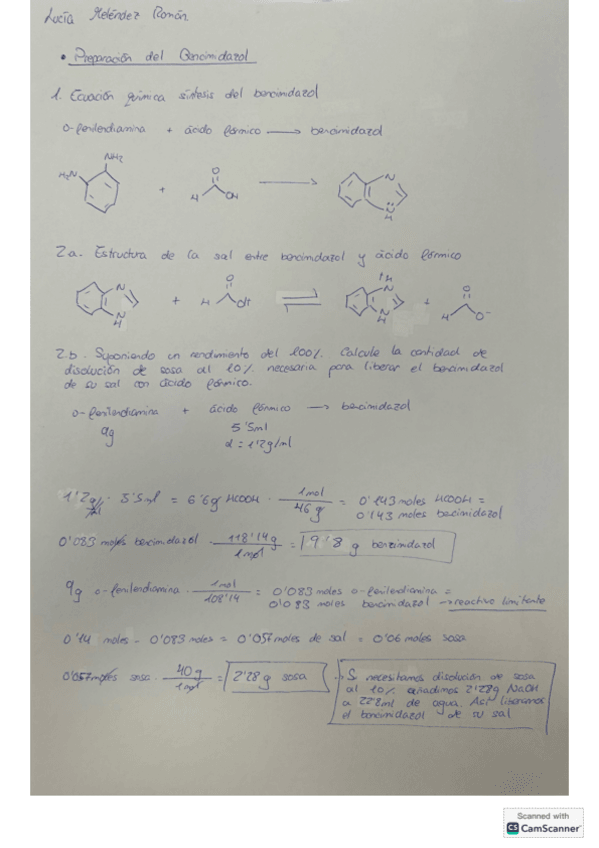 Lucía Meléndez Román
• Preparación del Bencimidazol
1. Ecuación química síntesis del bencimidazol
o-fenilendiamina + ácido fórmico → bencimidazol
NH₂
H₂N
O
+
H
OH
N
N
H
2a. Estructura de la sal entre bencimidazol y ácido fórmico
O
H
N
+ H
OH
⇌
N
+
O
N
H
N
H
H
O⁻
2.b. Suponiendo un rendimiento del 100%. Calcule la cantidad de
disolución de sosa al 10% necesaria para liberar el bencimidazol
de su sal con ácido fórmico.
o-fenilendiamina + ácido fórmico → bencimidazol
9g 5'5ml
d = 1'2g/ml
1'2g/ml · 5'5ml = 6'6g HCOOH · 1mol / 46g = 0'143 moles HCOOH =
0'143 moles bencimidazol
0'083 moles bencimidazol · 118'14g / 1mol = 9'8 g bencimidazol
9g o-fenilendiamina · 1mol / 108'14 = 0'083 moles o-fenilendiamina =
0'083 moles bencimidazol → reactivo limitante
0'14 moles - 0'083 moles = 0'057 moles de sal = 0'06 moles sosa
0'057 moles sosa · 40g / 1mol = 2'28g sosa
Si necesitamos disolución de sosa
al 10% añadimos 2'28g NaOH
a 22'8ml de agua. Así liberamos
el bencimidazol de su sal
Scanned with
CS CamScanner